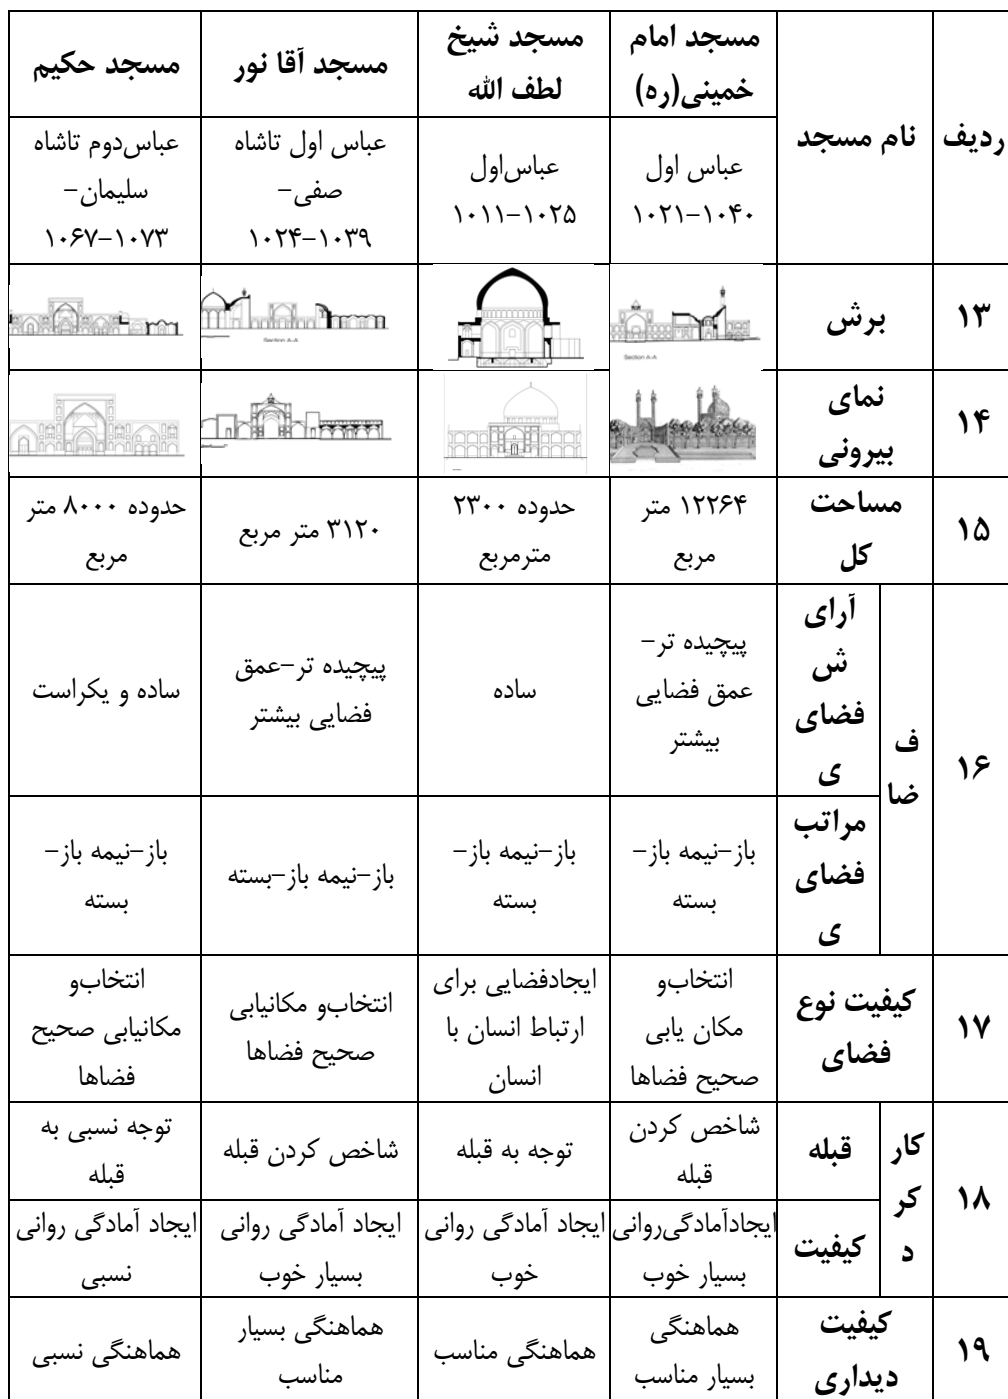 ردیف
نام مسجد
مسجد امام
خمینی(ره)
مسجد شیخ
لطف الله
مسجد آقا نور
مسجد حکیم
عباس اول
۱۰۲۱-۱۰۴۰
عباس‌اول
۱۰۱۱-۱۰۲۵
عباس اول تاشاه
صفی-
۱۰۲۴-۱۰۳۹
عباس‌دوم تاشاه
سلیمان-
۱۰۶۷-۱۰۷۳
۱۳
برش
Section A-A
Section A-A
۱۴
نمای
بیرونی
۱۵
مساحت
کل
۱۲۲۶۴ متر
مربع
حدوده ۲۳۰۰
مترمربع
۳۱۲۰ متر مربع
حدوده ۸۰۰۰ متر
مربع
۱۶
ف
ضا
آرای
ش
فضای
ی
پیچیده تر-
عمق فضایی
بیشتر
ساده
پیچیده تر-عمق
فضایی بیشتر
ساده و یکراست
مراتب
فضای
ی
باز-نیمه باز-
بسته
باز-نیمه باز-
بسته
باز-نیمه باز-بسته
باز-نیمه باز-
بسته
۱۷
کیفیت نوع
فضای
انتخاب‌و
مکان یابی
صحیح فضاها
ایجادفضایی برای
ارتباط انسان با
انسان
انتخاب‌و مکانیابی
صحیح فضاها
انتخاب‌و
مکانیابی صحیح
فضاها
۱۸
کار
کر
د
قبله
شاخص کردن
قبله
توجه به قبله
شاخص کردن قبله
توجه نسبی به
قبله
کیفیت
ایجادآمادگی‌روانی
بسیار خوب
ایجاد آمادگی روانی
خوب
ایجاد آمادگی روانی
بسیار خوب
ایجاد آمادگی روانی
نسبی
۱۹
کیفیت
دیداری
هماهنگی
بسیار مناسب
هماهنگی مناسب
هماهنگی بسیار
مناسب
هماهنگی نسبی